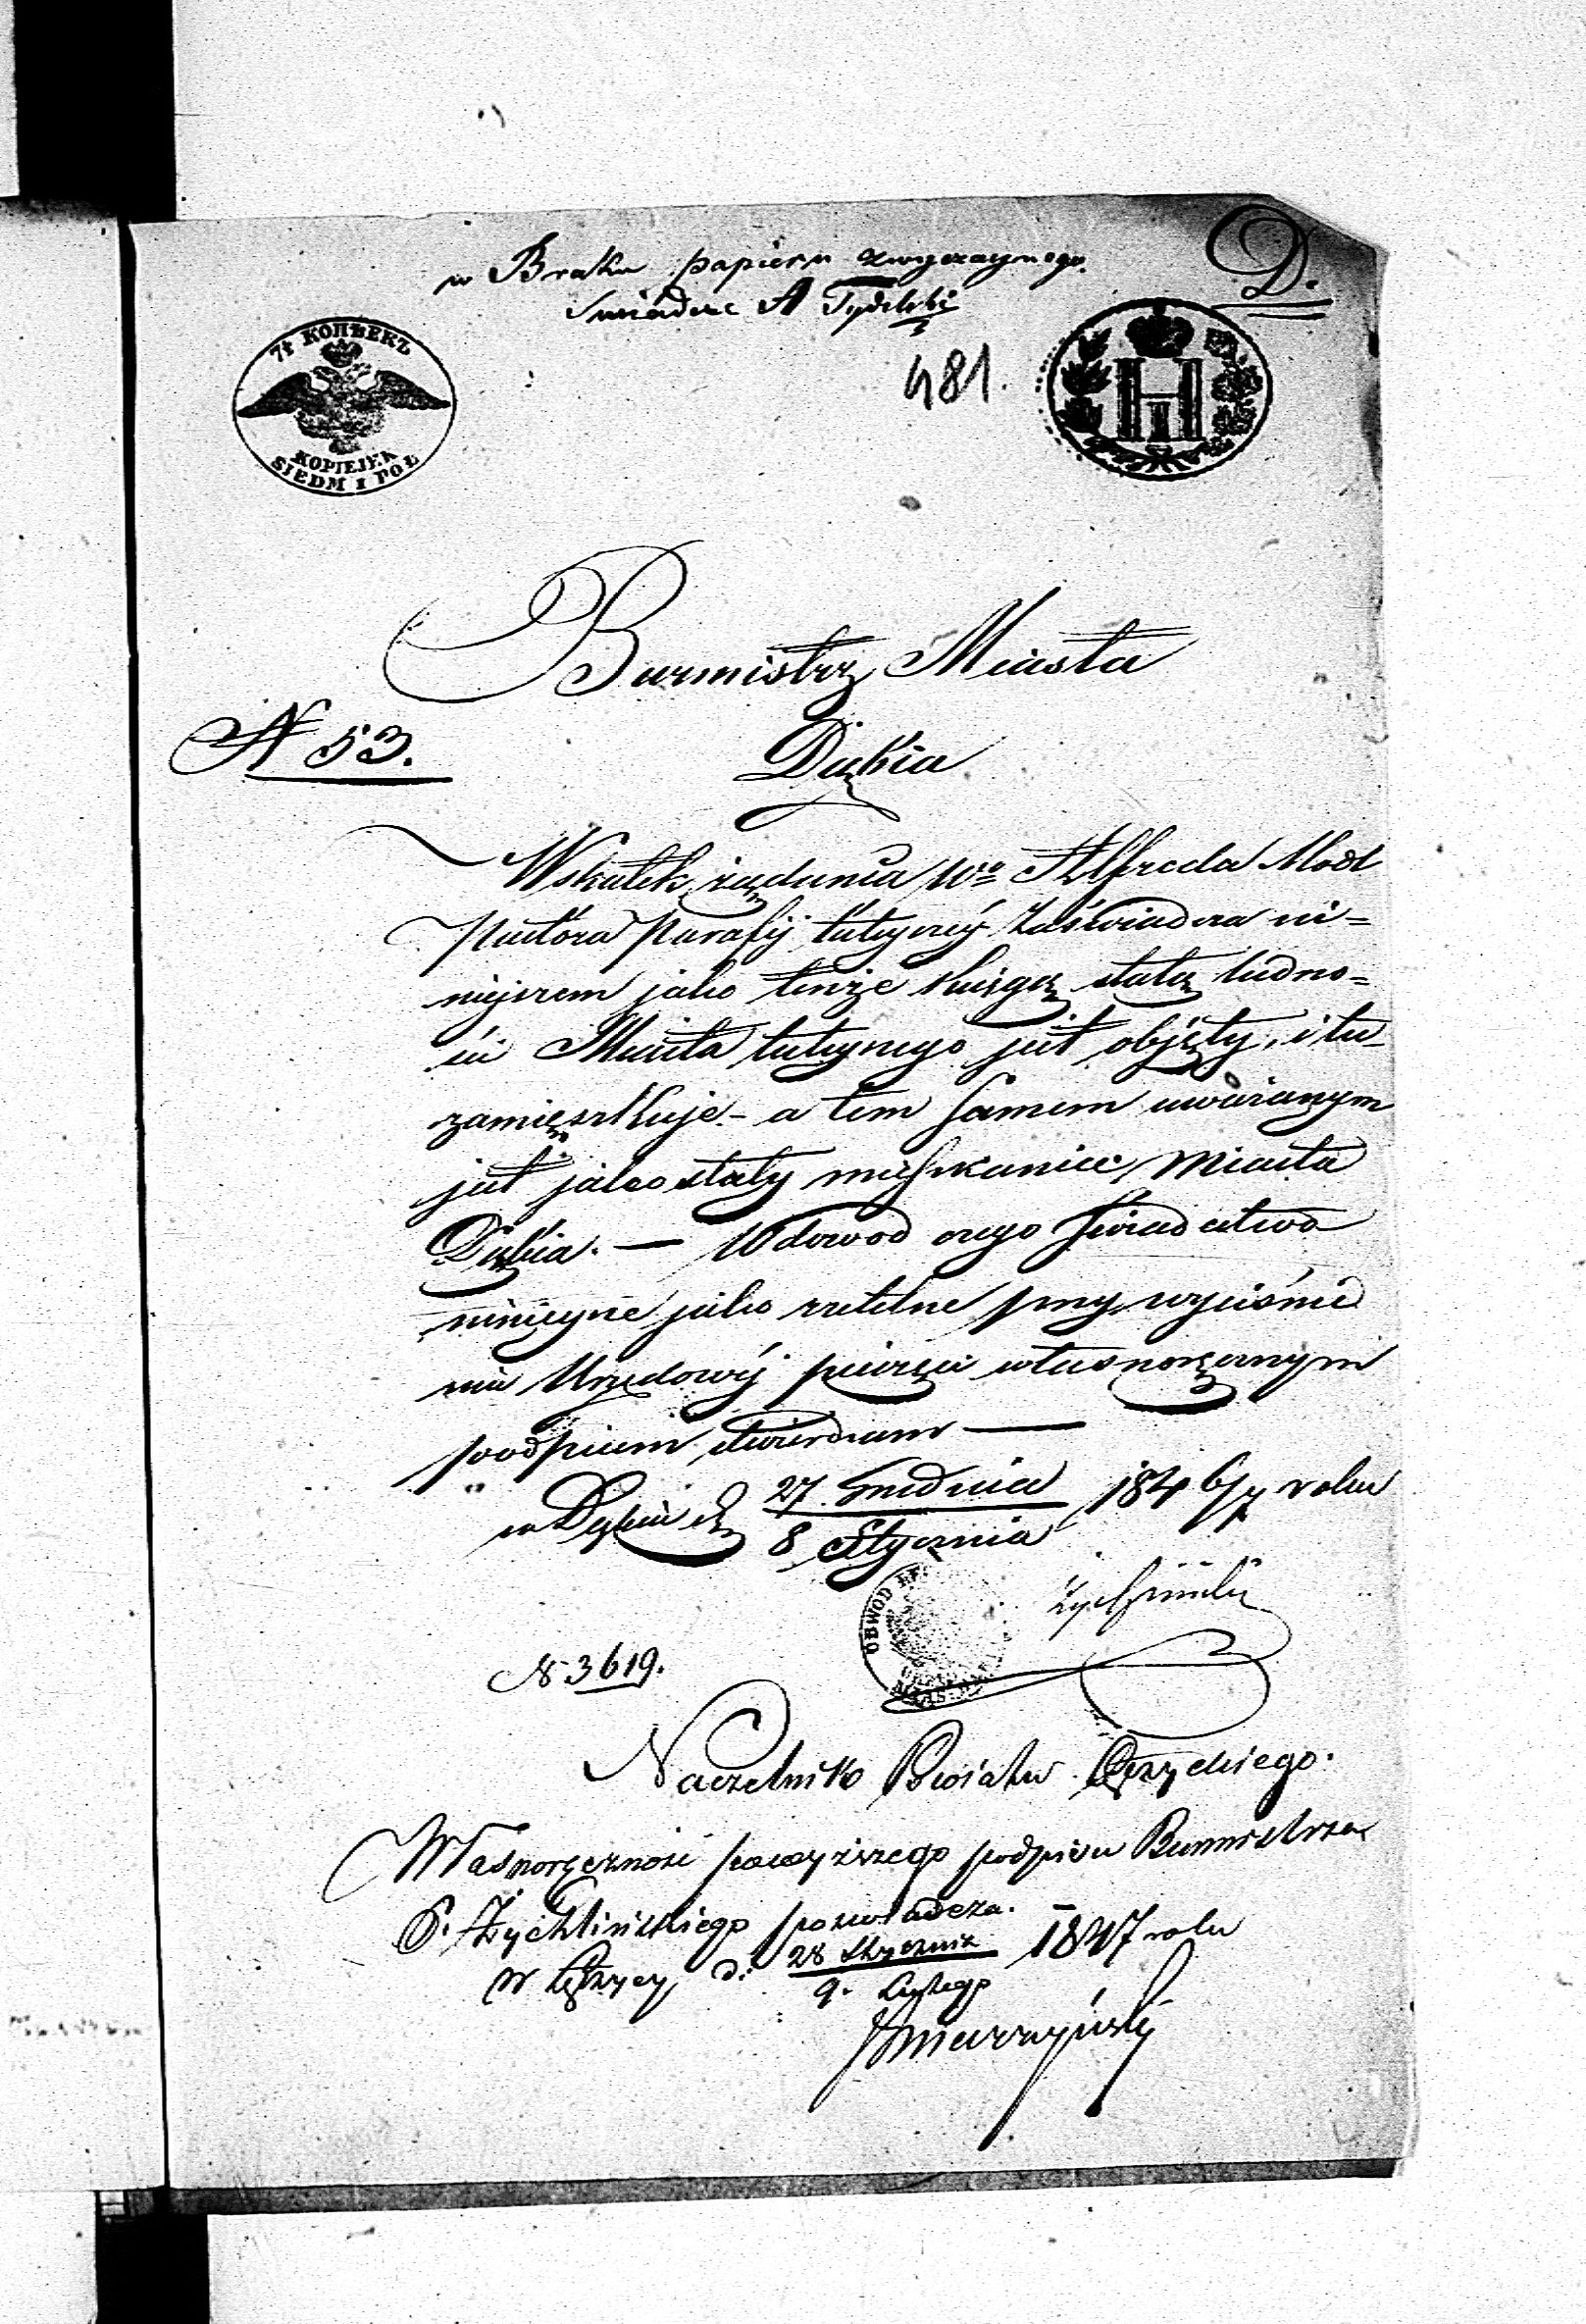 w Braku papieru zwyczaynego
Swiadcze A Tydelski
D.
7½ КОПѢЕКЪ
KOPIEJEK
SIEDM I PÓŁ
481.
Burmistrz Miasta
N 53.
Dąbia
Wskutek żądania Wo Alfreda Modl
Pastora Parafij tuteyszéy Zaświadcza ni=
niejszem jako tenże księgą stałą ludno=
ści Miasta tuteyszego jest objęty, i tu
zamięszkuje - a tem samem uważanym
jest jako stały mieszkaniec Miasta
Dąbia. — W dowod czego świadectwo
niniejsze jako rzetelne przy wyciśnie
niu Urzędowéj pieczęci własnoręcznym
podpisem stwierdzam —
w Dąbiu d. 27 Grudnia 1846/7 roku
8 Stycznia
OBWOD
Żychliński
N 3619.
Naczelnik Powiatu Łęczyckiego.
Własnoręczność powyższego podpisu Burmistrza
S. Żychlińskiego poświadcza.
w Łęczycy d. 28 Stycznia 1847 roku
9. Lutego